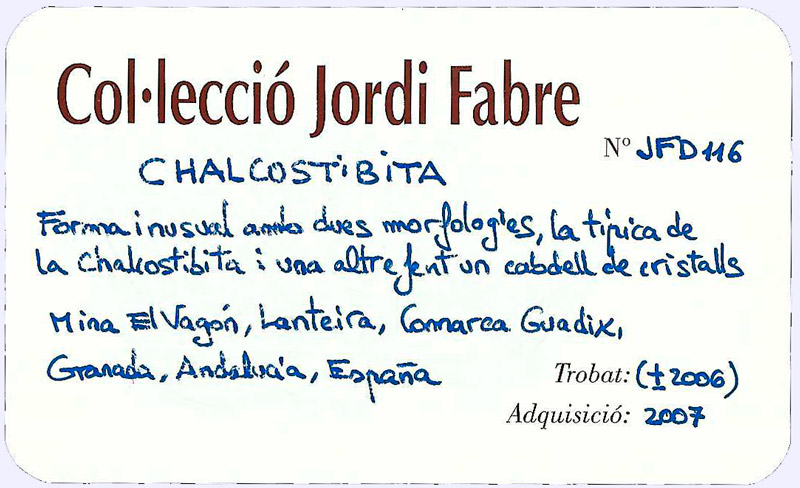 Col·lecció Jordi Fabre
Nº JFD116
CHALCOSTIBITA
Forma inusual amb dues morfologies, la típica de
la Chalcostibita i una altre fent un cabdell de cristalls
Mina El Vagón, Lanteira, Comarca Guadix,
Granada, Andalucía, España
Trobat: (±2006)
Adquisició: 2007